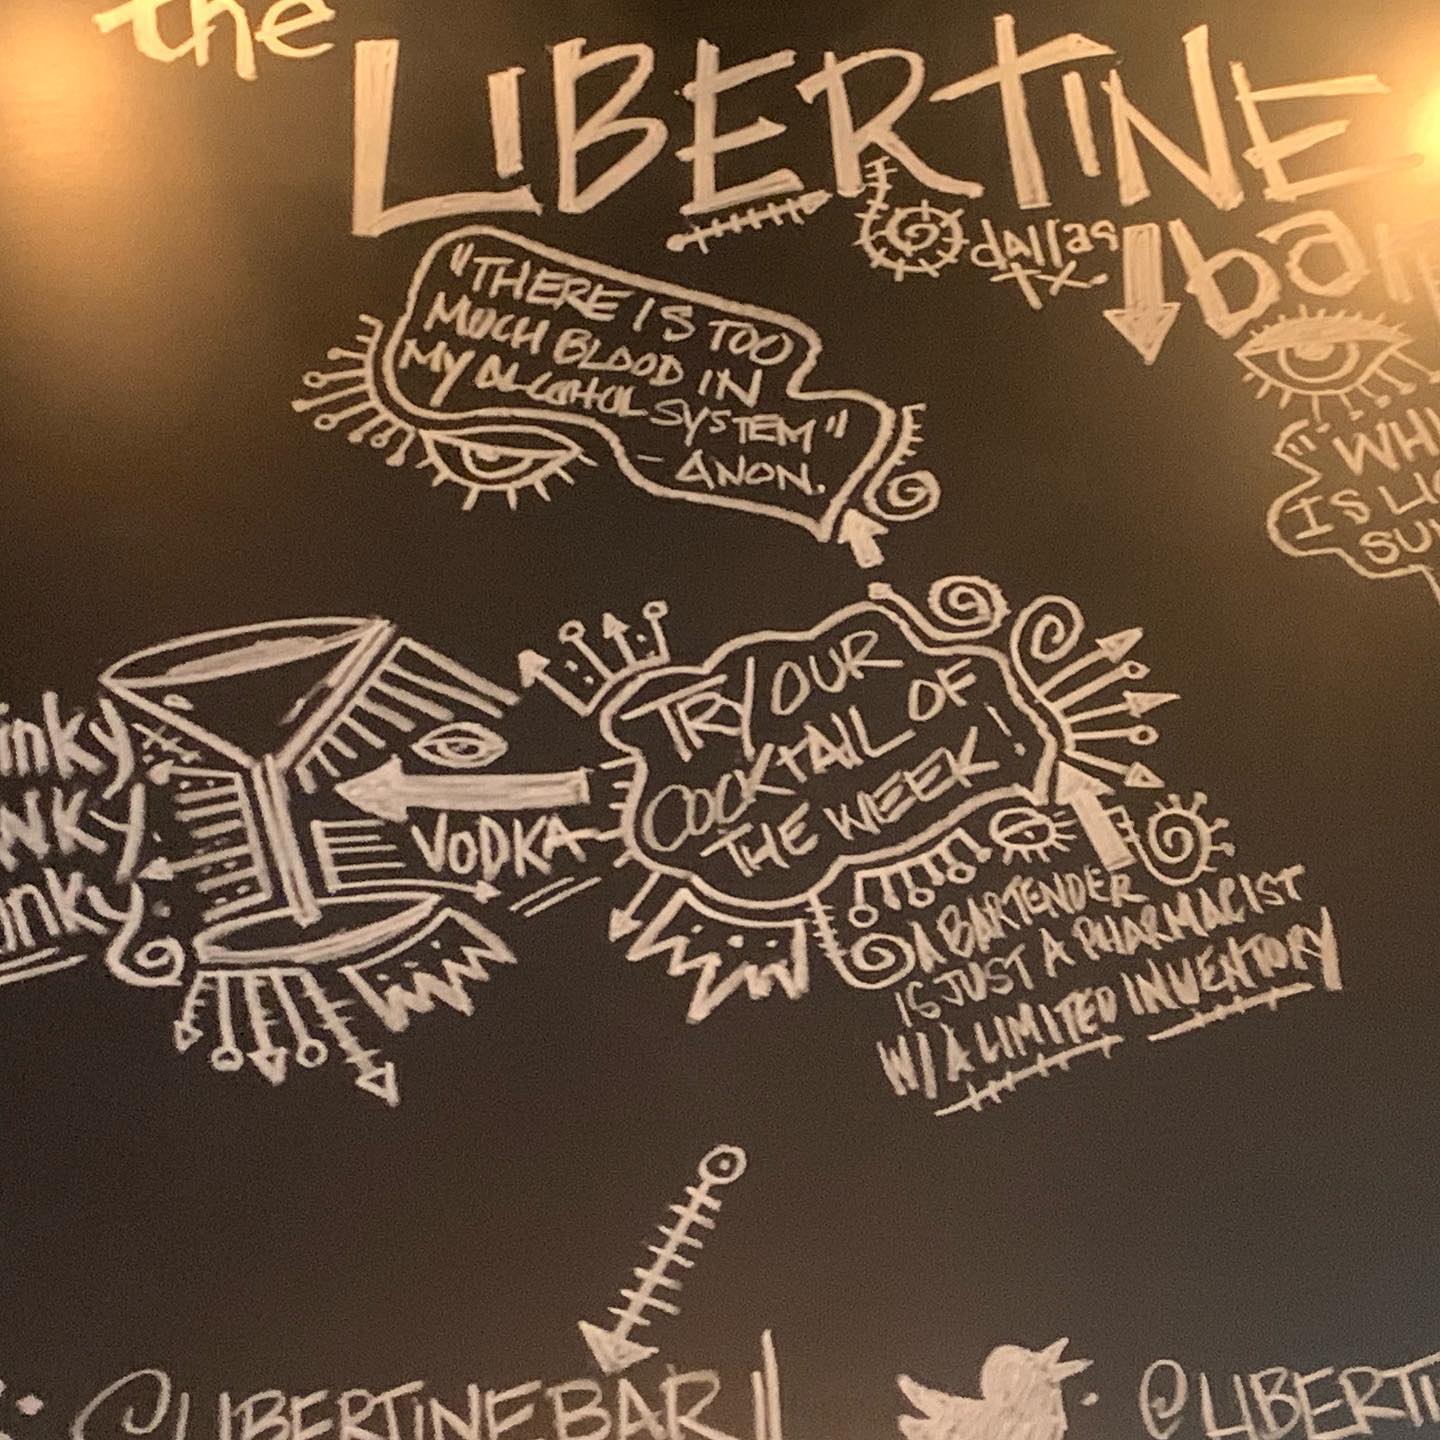 the
LIBERTINE
dallas
TX.
bar
"THERE IS TOO
MUCH BLOOD IN
MY ALCOHOL SYSTEM"
- ANON.
IS
TRY OUR
COCKTAIL OF
THE WEEK!
VODKA
A BARTENDER
IS JUST A PHARMACIST
W/ A LIMITED INVENTORY
@LIBERTINEBAR